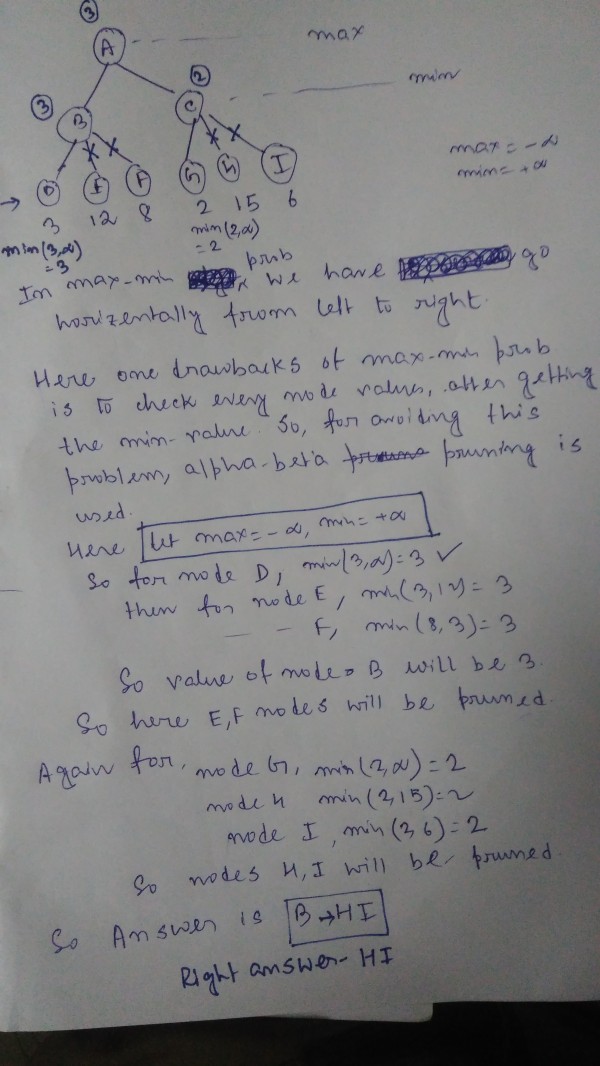 3
A max
2
C min
3
B
max = -∞
min = +∞
D E F G H I
3 12 8 2 15 6
min(3,∞)
= 3
min(2,∞)
= 2
In max-min prob we have go
horizentally from left to right.
Here one drawbacks of max-min prob
is to check every node values, after getting
the min-value. So, for avoiding this
problem, alpha-beta pruning is
used.
Here let max = -∞, min = +∞
So for node D, min(3,∞) = 3 ✓
then for node E, min(3,12) = 3
— — F, min(8,3) = 3
So value of node B will be 3.
So here E,F nodes will be pruned.
Again for, node G, min(2,∞) = 2
node H min(2,15)=2
node I, min(2,6) = 2
So nodes H,I will be pruned.
So Answer is B→HI
Right answer- HI